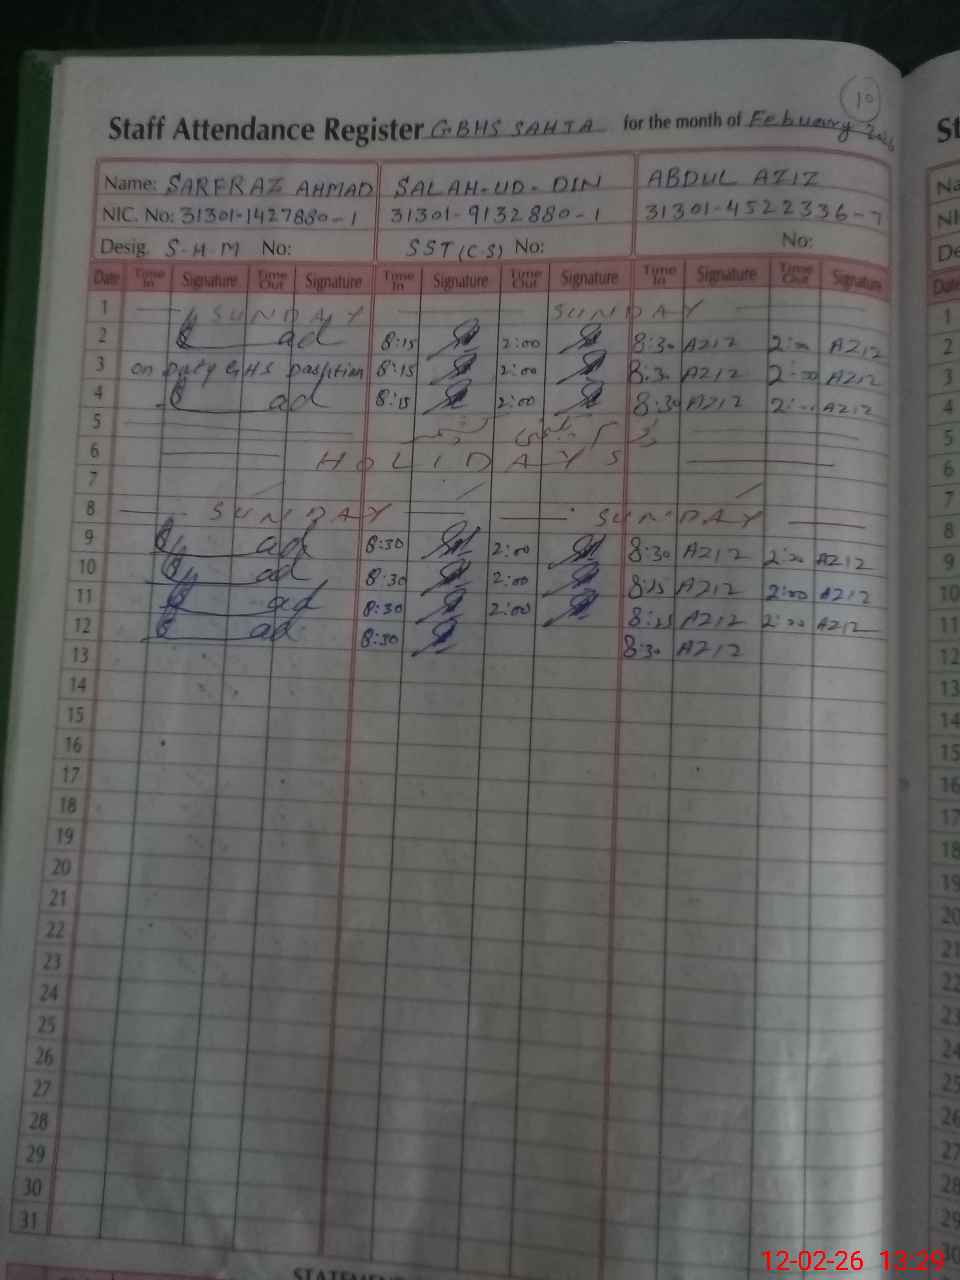 10
Staff Attendance Register GBHS SAHJA for the month of February 2026
Name: SARFRAZ AHMAD SALAH-UD-DIN ABDUL AZIZ
NIC. No: 31301-1427880-1 31301-9132880-1 31301-4522336-7
Desig. S-H-M No: SST (C-S) No: No:
Date Time In Signature Time Out Signature Time In Signature Time Out Signature Time In Signature Time Out Signature
1 SUNDAY SUNDAY
2 8:15 2:00 8:30 AZIZ 2:00 AZIZ
3 on Duty GHS 8:15 2:00 8:30 AZIZ 2:00 AZIZ
4 8:15 2:00 8:30 AZIZ 2:00 AZIZ
5
6 HOLIDAYS
7
8 SUNDAY SUNDAY
9 8:30 2:00 8:30 AZIZ 2:00 AZIZ
10 8:30 2:00 8:25 AZIZ 2:00 AZIZ
11 8:30 2:00 8:25 AZIZ 2:00 AZIZ
12 8:30 8:30 AZIZ
13
14
15
16
17
18
19
20
21
22
23
24
25
26
27
28
29
30
31
12-02-26 13:29